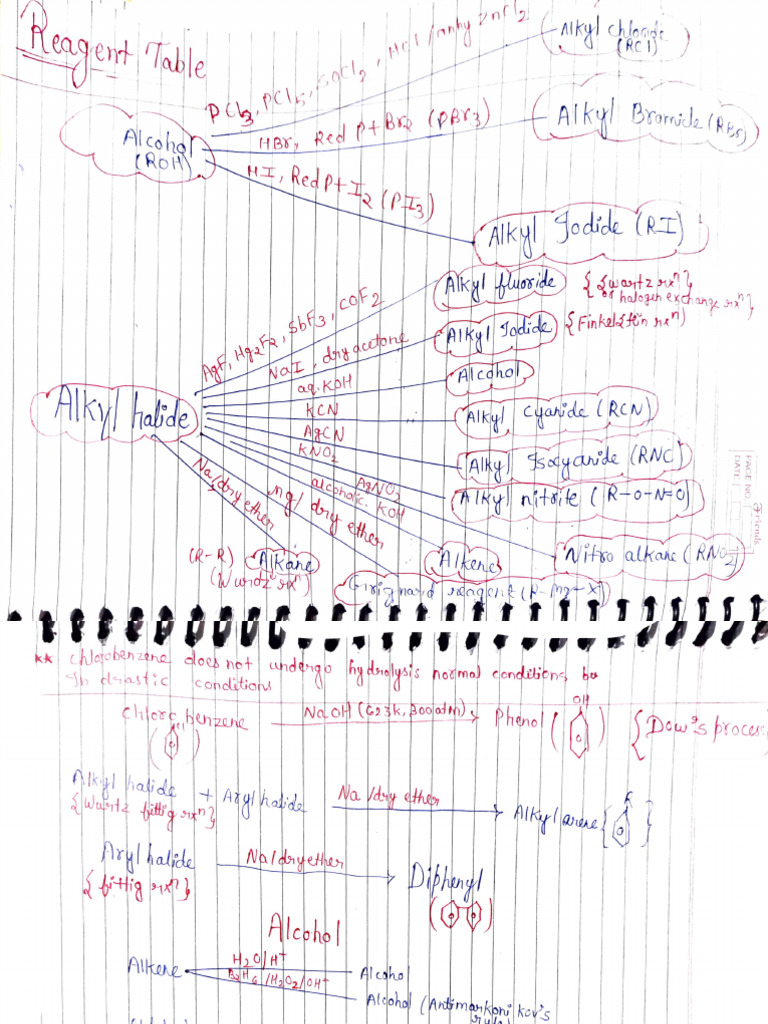 Reagent Table
PCl3, PCl5, SOCl2, HCl/anhy ZnCl2
Alkyl chloride
(RCl)
Alcohol
(ROH)
HBr, Red P+Br2 (PBr3)
Alkyl Bromide (RBr)
HI, Red P+I2 (PI3)
Alkyl Iodide (RI)
AgF, Hg2F2, SbF3, COF2
Alkyl fluoride
{ Swartz rxn }
or halogen exchange rxn }
NaI, dry acetone
Alkyl Iodide
{Finkelstin rxn)
aq. KOH
Alcohol
Alkyl halide
KCN
Alkyl Cyanide (RCN)
AgCN
Alkyl Isocyanide (RNC)
KNO2
Alkyl nitrite (R-O-N=O)
AgNO2
Nitro alkane (RNO2)
alcoholic. KOH
Alkene
mg/dry ether
Grignard reagent (R-Mg-X)
Na/dry ether
(R-R) Alkane
(Wurdz rxn)
PAGE NO.
DATE
Friends
** chlorobenzene does not undergo hydrolysis normal conditions bu
In drastic conditions
Chloro benzene
NaOH (623k, 300 atm)
Phenol
OH
{Dow's process
Cl
Alkyl halide + Aryl halide
Na/dry ether
Alkyl arene
R
{wurtz fittig rxn}
Aryl halide
Na/dry ether
Diphenyl
{fittig rxn}
Alcohol
Alkene
H2O/H+
Alcohol
B2H6/H2O2/OH+
Alcohol (Antimarkoni kov's